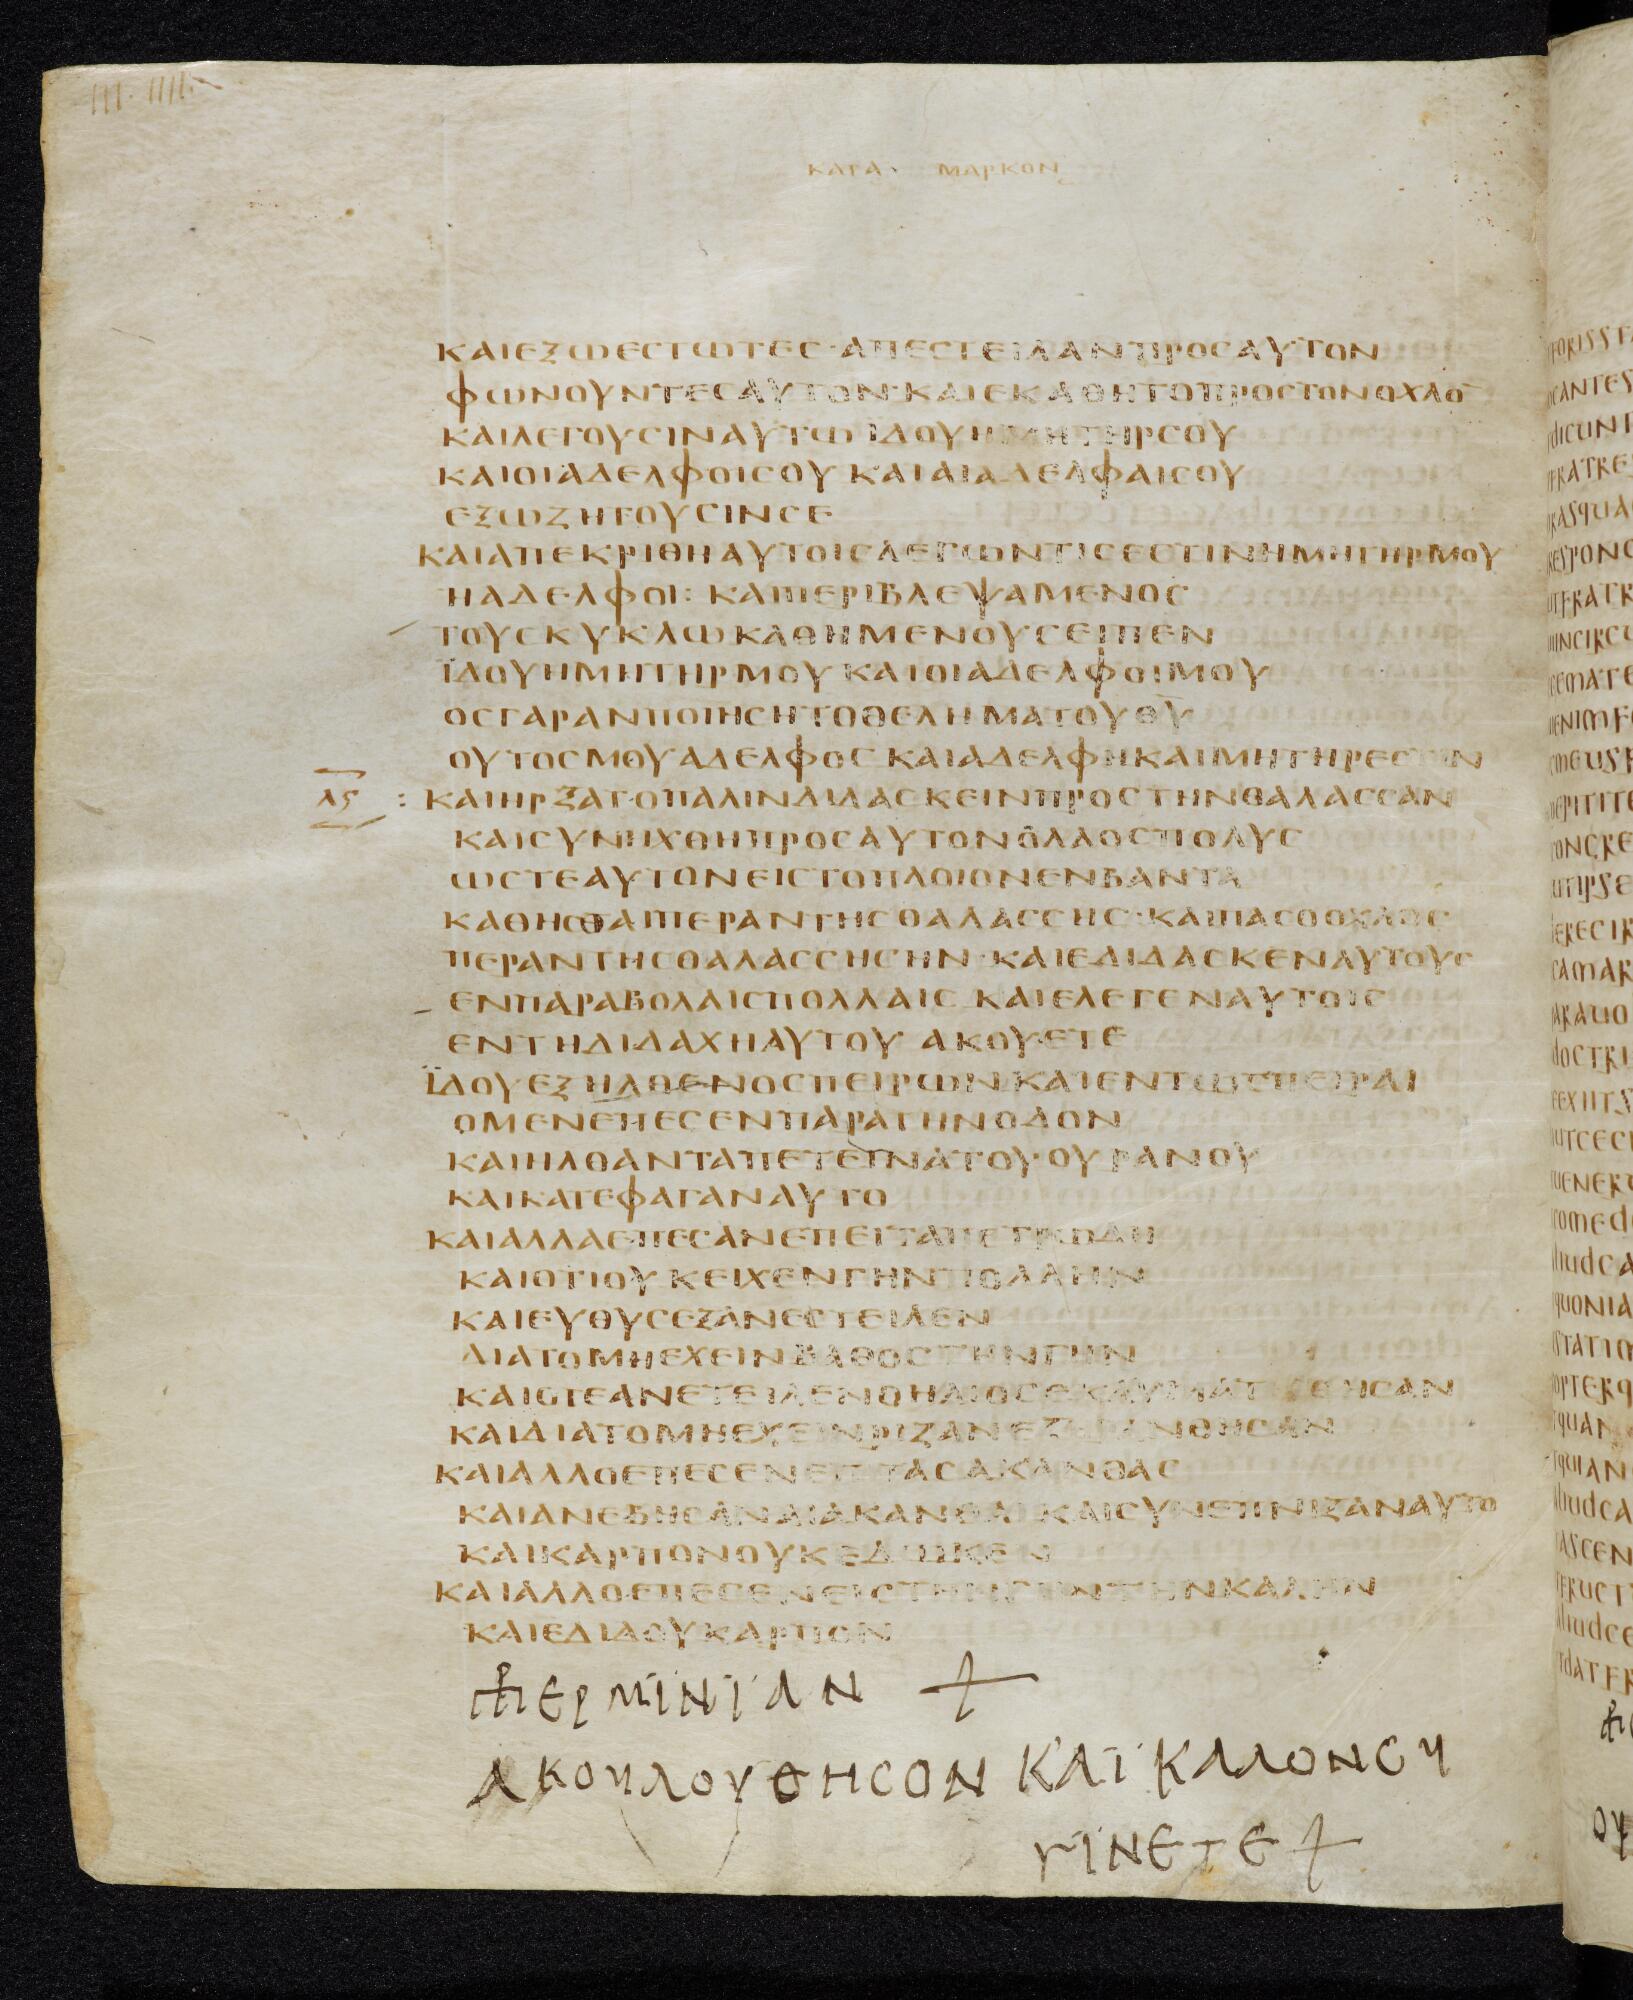 ΚΑΤΑ ΜΑΡΚΟΝ
ΚΑΙΕΞΩΕСΤΩΤΕС·ΑΠΕСΤΕΙΛΑΝΠΡΟСΑΥΤΟΝ
ΦΩΝΟΥΝΤΕСΑΥΤΟΝ·ΚΑΙΕΚΑΘΗΤΟΠΡΟСΤΟΝΟΧΛΟ̅
ΚΑΙΛΕΓΟΥСΙΝΑΥΤΩ ΪΔΟΥΗΜΗΤΗΡСΟΥ
ΚΑΙΟΙΑΔΕΛΦΟΙСΟΥ ΚΑΙΑΙΑΔΕΛΦΑΙСΟΥ
ΕΞΩΖΗΤΟΥСΙΝСΕ
ΚΑΙΑΠΕΚΡΙΘΗΑΥΤΟΙСΛΕΓΩΝΤΙСΕСΤΙΝΗΜΗΤΗΡΜΟΥ
ΗΑΔΕΛΦΟΙ: ΚΑΙΠΕΡΙΒΛΕΨΑΜΕΝΟС
ΤΟΥСΚΥΚΛΩΚΑΘΗΜΕΝΟΥСΕΙΠΕΝ
ΪΔΟΥΗΜΗΤΗΡΜΟΥ ΚΑΙΟΙΑΔΕΛΦΟΙΜΟΥ
ΟСΓΑΡΑΝΠΟΙΗСΗΤΟΘΕΛΗΜΑΤΟΥΘ̅Υ̅
ΟΥΤΟСΜΟΥΑΔΕΛΦΟС ΚΑΙΑΔΕΛΦΗΚΑΙΜΗΤΗΡΕСΤΙΝ
Λς : ΚΑΙΗΡΞΑΤΟΠΑΛΙΝΔΙΔΑСΚΕΙΝΠΡΟСΤΗΝΘΑΛΑССΑΝ
ΚΑΙСΥΝΗΧΘΗΠΡΟСΑΥΤΟΝΟΛΑΟСΠΟΛΥС
ΩСΤΕΑΥΤΟΝΕΙСΤΟΠΛΟΙΟΝΕΝΒΑΝΤΑ
ΚΑΘΗСΘΑΙΠΕΡΑΝΤΗСΘΑΛΑССΗС·ΚΑΙΠΑСΟΟΧΛΟС
ΠΕΡΑΝΤΗСΘΑΛΑССΗСΗΝ·ΚΑΙΕΔΙΔΑСΚΕΝΑΥΤΟΥС
ΕΝΠΑΡΑΒΟΛΑΙСΠΟΛΛΑΙС ΚΑΙΕΛΕΓΕΝΑΥΤΟΙС
ΕΝΤΗΔΙΔΑΧΗΑΥΤΟΥ ΑΚΟΥΕΤΕ
ΪΔΟΥΕΞΗΛΘΕΝΟСΠΕΙΡΩΝ ΚΑΙΕΝΤΩСΠΕΙΡΑΙ
ΟΜΕΝΕΠΕСΕΝΠΑΡΑΤΗΝΟΔΟΝ
ΚΑΙΗΛΘΑΝΤΑΠΕΤΕΙΝΑΤΟΥΟΥΡΑΝΟΥ
ΚΑΙΚΑΤΕΦΑΓΑΝΑΥΤΟ
ΚΑΙΑΛΛΑΕΠΕСΑΝΕΠΕΙΤΑΠΕΤΡΩΔΗ
ΚΑΙΟΤΙΟΥΚΕΙΧΕΝΓΗΝΠΟΛΛΗΝ
ΚΑΙΕΥΘΥСΕΞΑΝΕСΤΕΙΛΕΝ
ΔΙΑΤΟΜΗΕΧΕΙΝΒΑΘΟСΤΗΝΓΗΝ
ΚΑΙΟΤΕΑΝΕΤΕΙΛΕΝΟΗΛΙΟСΕΚΑΥΜΑΤΙСΘΗСΑΝ
ΚΑΙΔΙΑΤΟΜΗΕΧΕΙΝΡΙΖΑΝΕΞΗΡΑΝΘΗСΑΝ
ΚΑΙΑΛΛΟΕΠΕСΕΝΕΠΙΤΑСΑΚΑΝΘΑС
ΚΑΙΑΝΕΒΗСΑΝΑΙΑΚΑΝΘΑΙ ΚΑΙСΥΝΕΠΝΙΞΑΝΑΥΤΟ
ΚΑΙΚΑΡΠΟΝΟΥΚΕΔΩΚΕΝ
ΚΑΙΑΛΛΟΕΠΕСΕΝΕΙСΤΗΝΓΗΝΤΗΝΚΑΛΗΝ
ΚΑΙΕΔΙΔΟΥΚΑΡΠΟΝ
ΕΡΜΪΝΪΑΝ +
ΑΚΟΥΛΟΥΘΗСΟΝ ΚΑΪ ΚΑΛΟΝСΥ
ΓΪΝΕΤΕ +